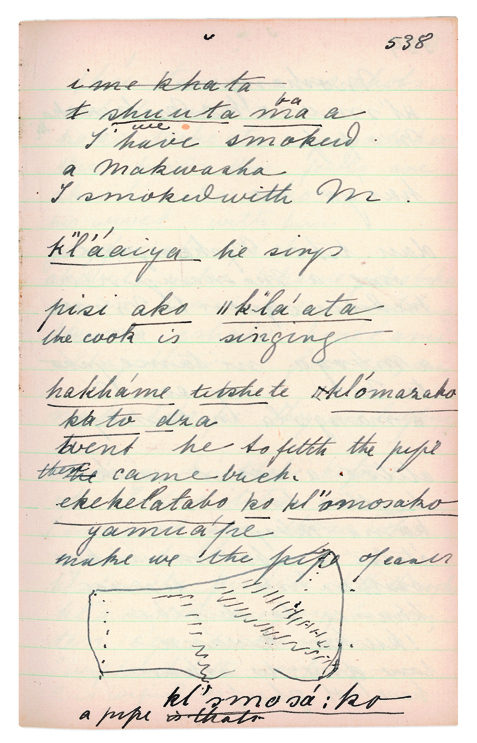 538
ime khata
t shuuta ma a
ba
I have smoked.
we
a Makwasha
I smoked with M.
k"l'áaiya he sings
pisi ako "k"lá ata
the cook is singing
hakháme tetshete "kl'ómazako
kato dza
went he to fetch the pipe
he came back.
ekekelatabo ko kl"omosako
yamuápe
make we the pipe of earth
kl'smosá:ko
a pipe